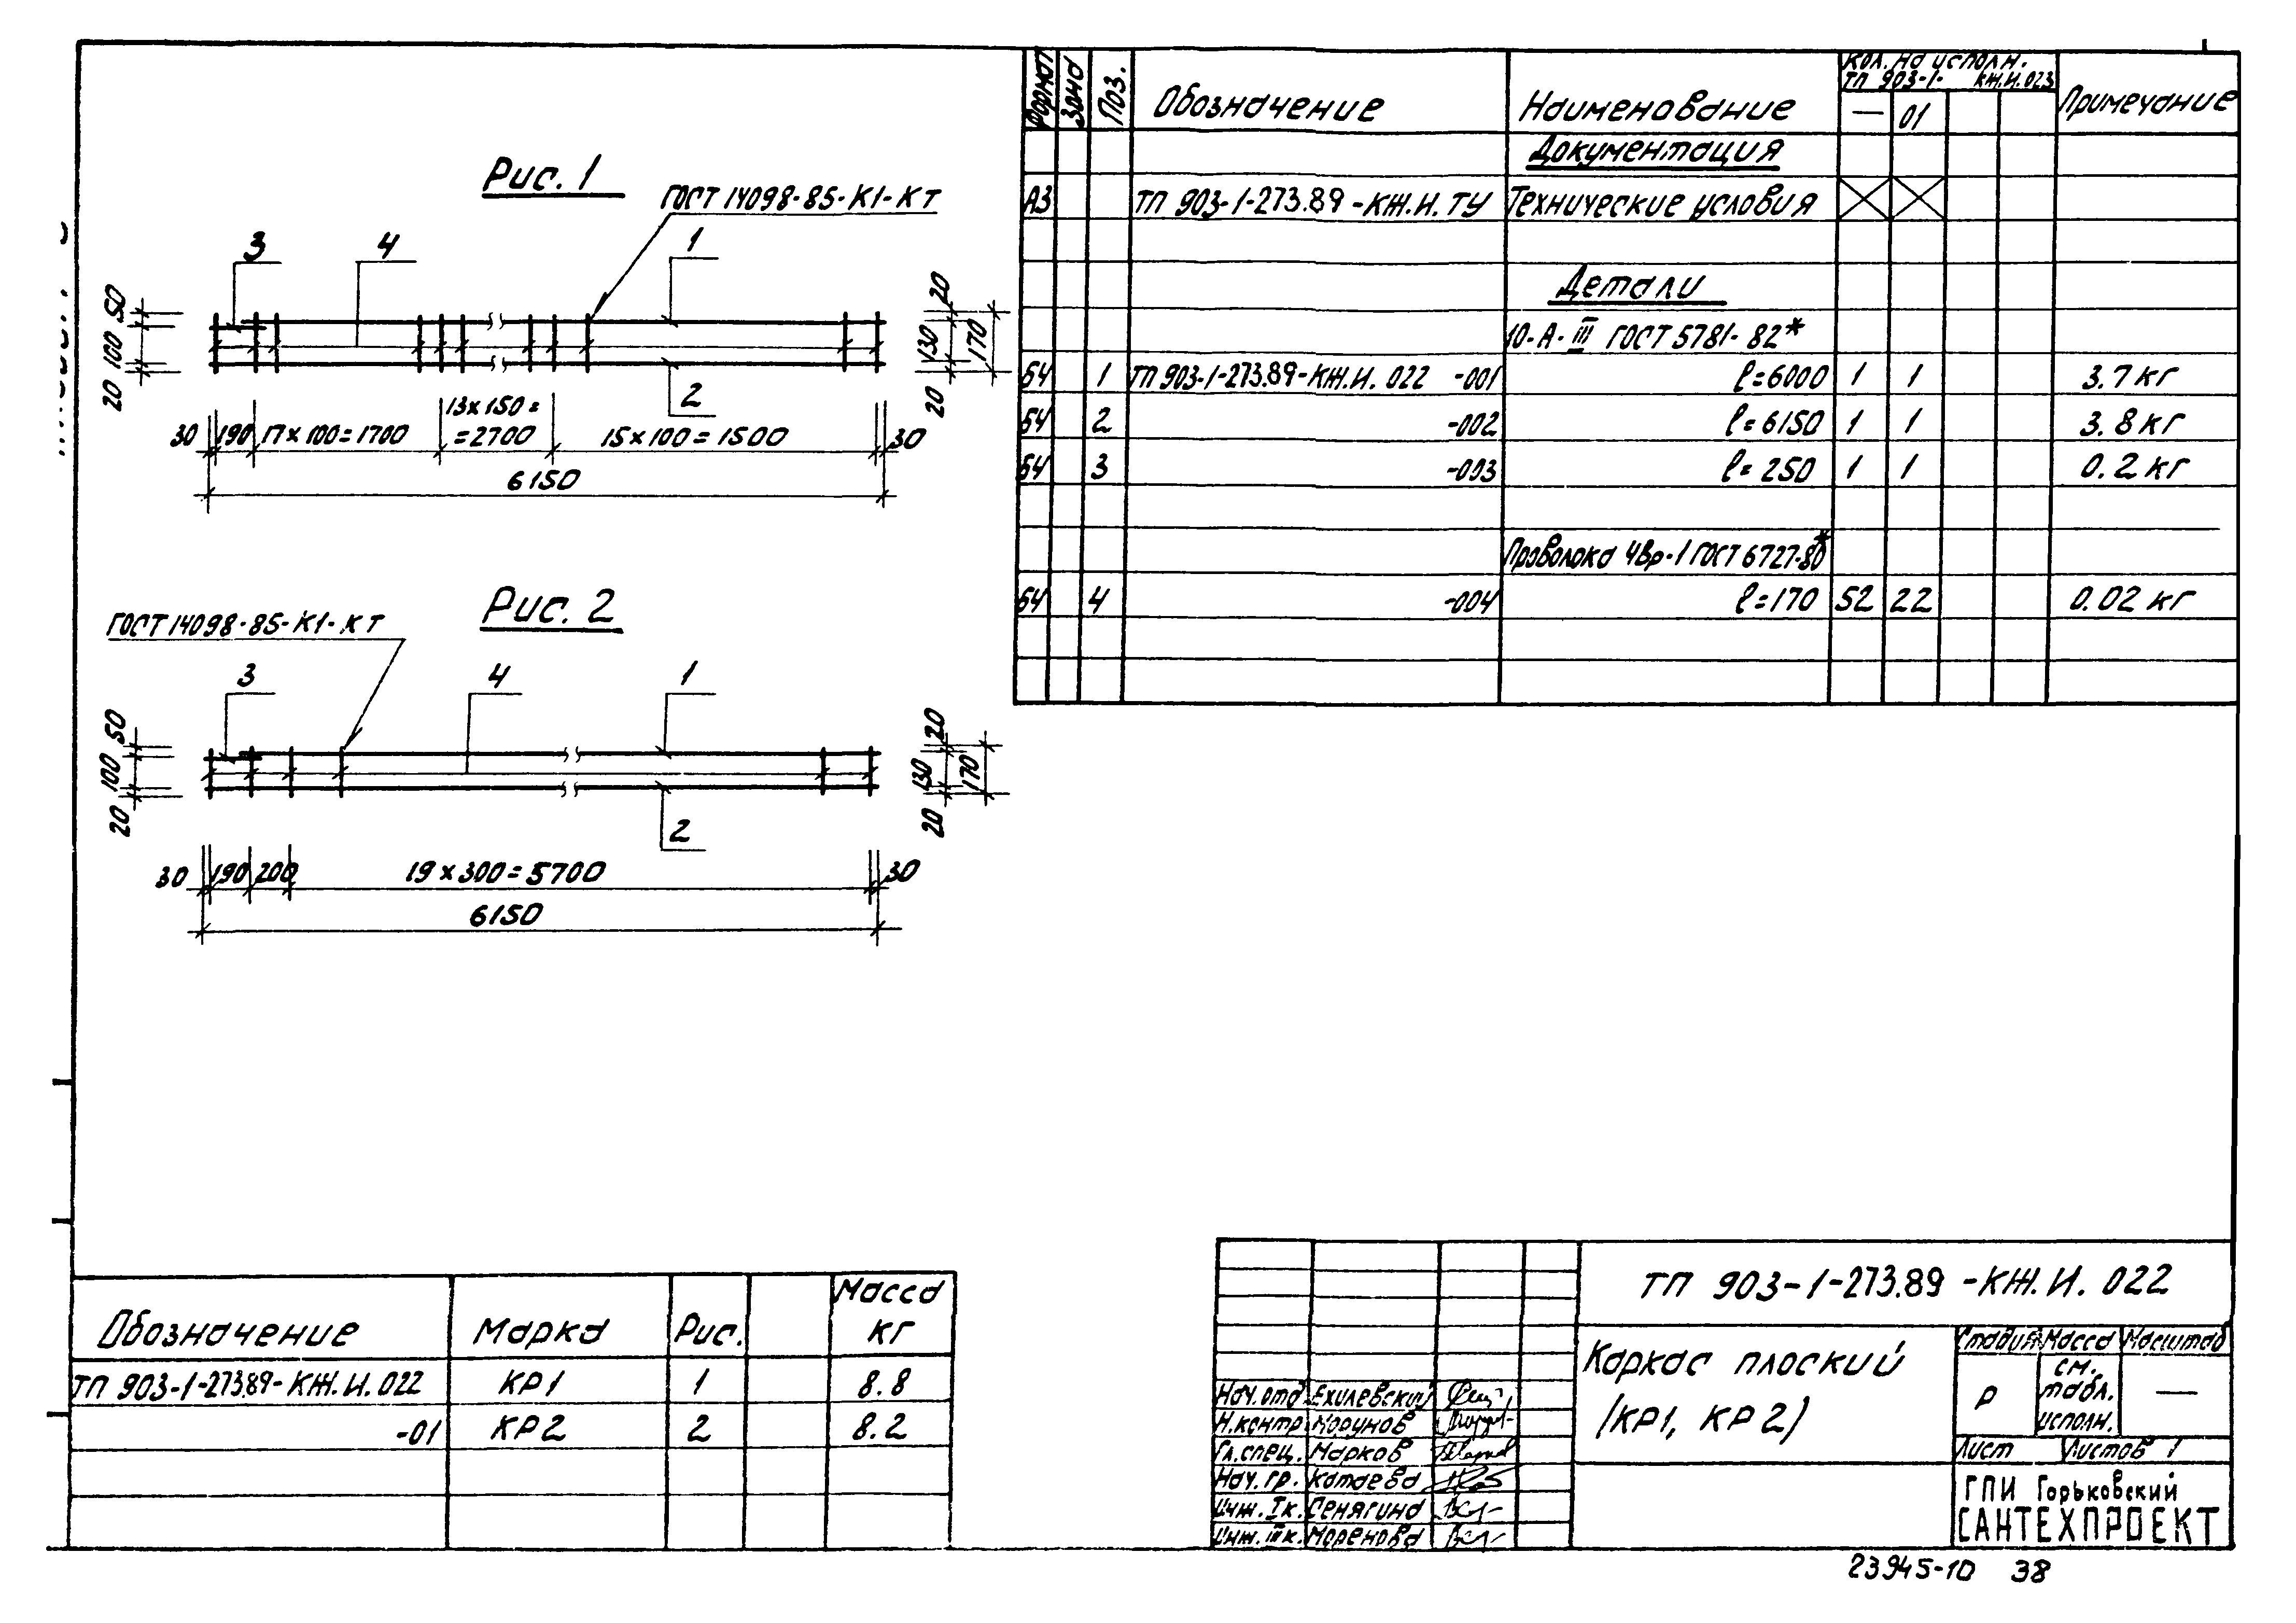 Рис. 1
ГОСТ 14098-85-К1-КТ
3
4
1
50
100
20
20
130
170
20
2
30
190
17×100=1700
13×150=
=2700
15×100=1500
30
6150
Рис. 2
ГОСТ 14098-85-К1-КТ
3
4
1
50
100
20
20
130
170
20
2
30
190
200
19×300=5700
30
6150
Формат
Зона
Поз.
Обозначение
Наименование
Кол. на исполн.
ТП 903-1- КЖ.И.023
— 01
Примечание
Документация
А3 ТП 903-1-273.89-КЖ.И.ТУ Технические условия
Детали
10-А-III ГОСТ 5781-82*
Б4 1 ТП 903-1-273.89-КЖ.И. 022 -001 ℓ=6000 1 1 3.7 кг
Б4 2 -002 ℓ=6150 1 1 3.8 кг
Б4 3 -003 ℓ=250 1 1 0.2 кг
Проволока 4Вр-1 ГОСТ 6727-80*
Б4 4 -004 ℓ=170 52 22 0.02 кг
Обозначение Марка Рис. Масса кг
ТП 903-1-273.89-КЖ.И.022 КР1 1 8.8
-01 КР2 2 8.2
ТП 903-1-273.89-КЖ.И. 022
Каркас плоский
(КР1, КР2)
Стадия Масса Масштаб
Р см. табл. исполн. —
Лист Листов 1
Нач.отд Ехилевский
Н.контр Морунов
Гл.спец. Марков
Нач. гр. Катаева
Инж. Iк. Сенягина
Инж. IIIк. Моренова
ГПИ Горьковский
САНТЕХПРОЕКТ
23945-10 38